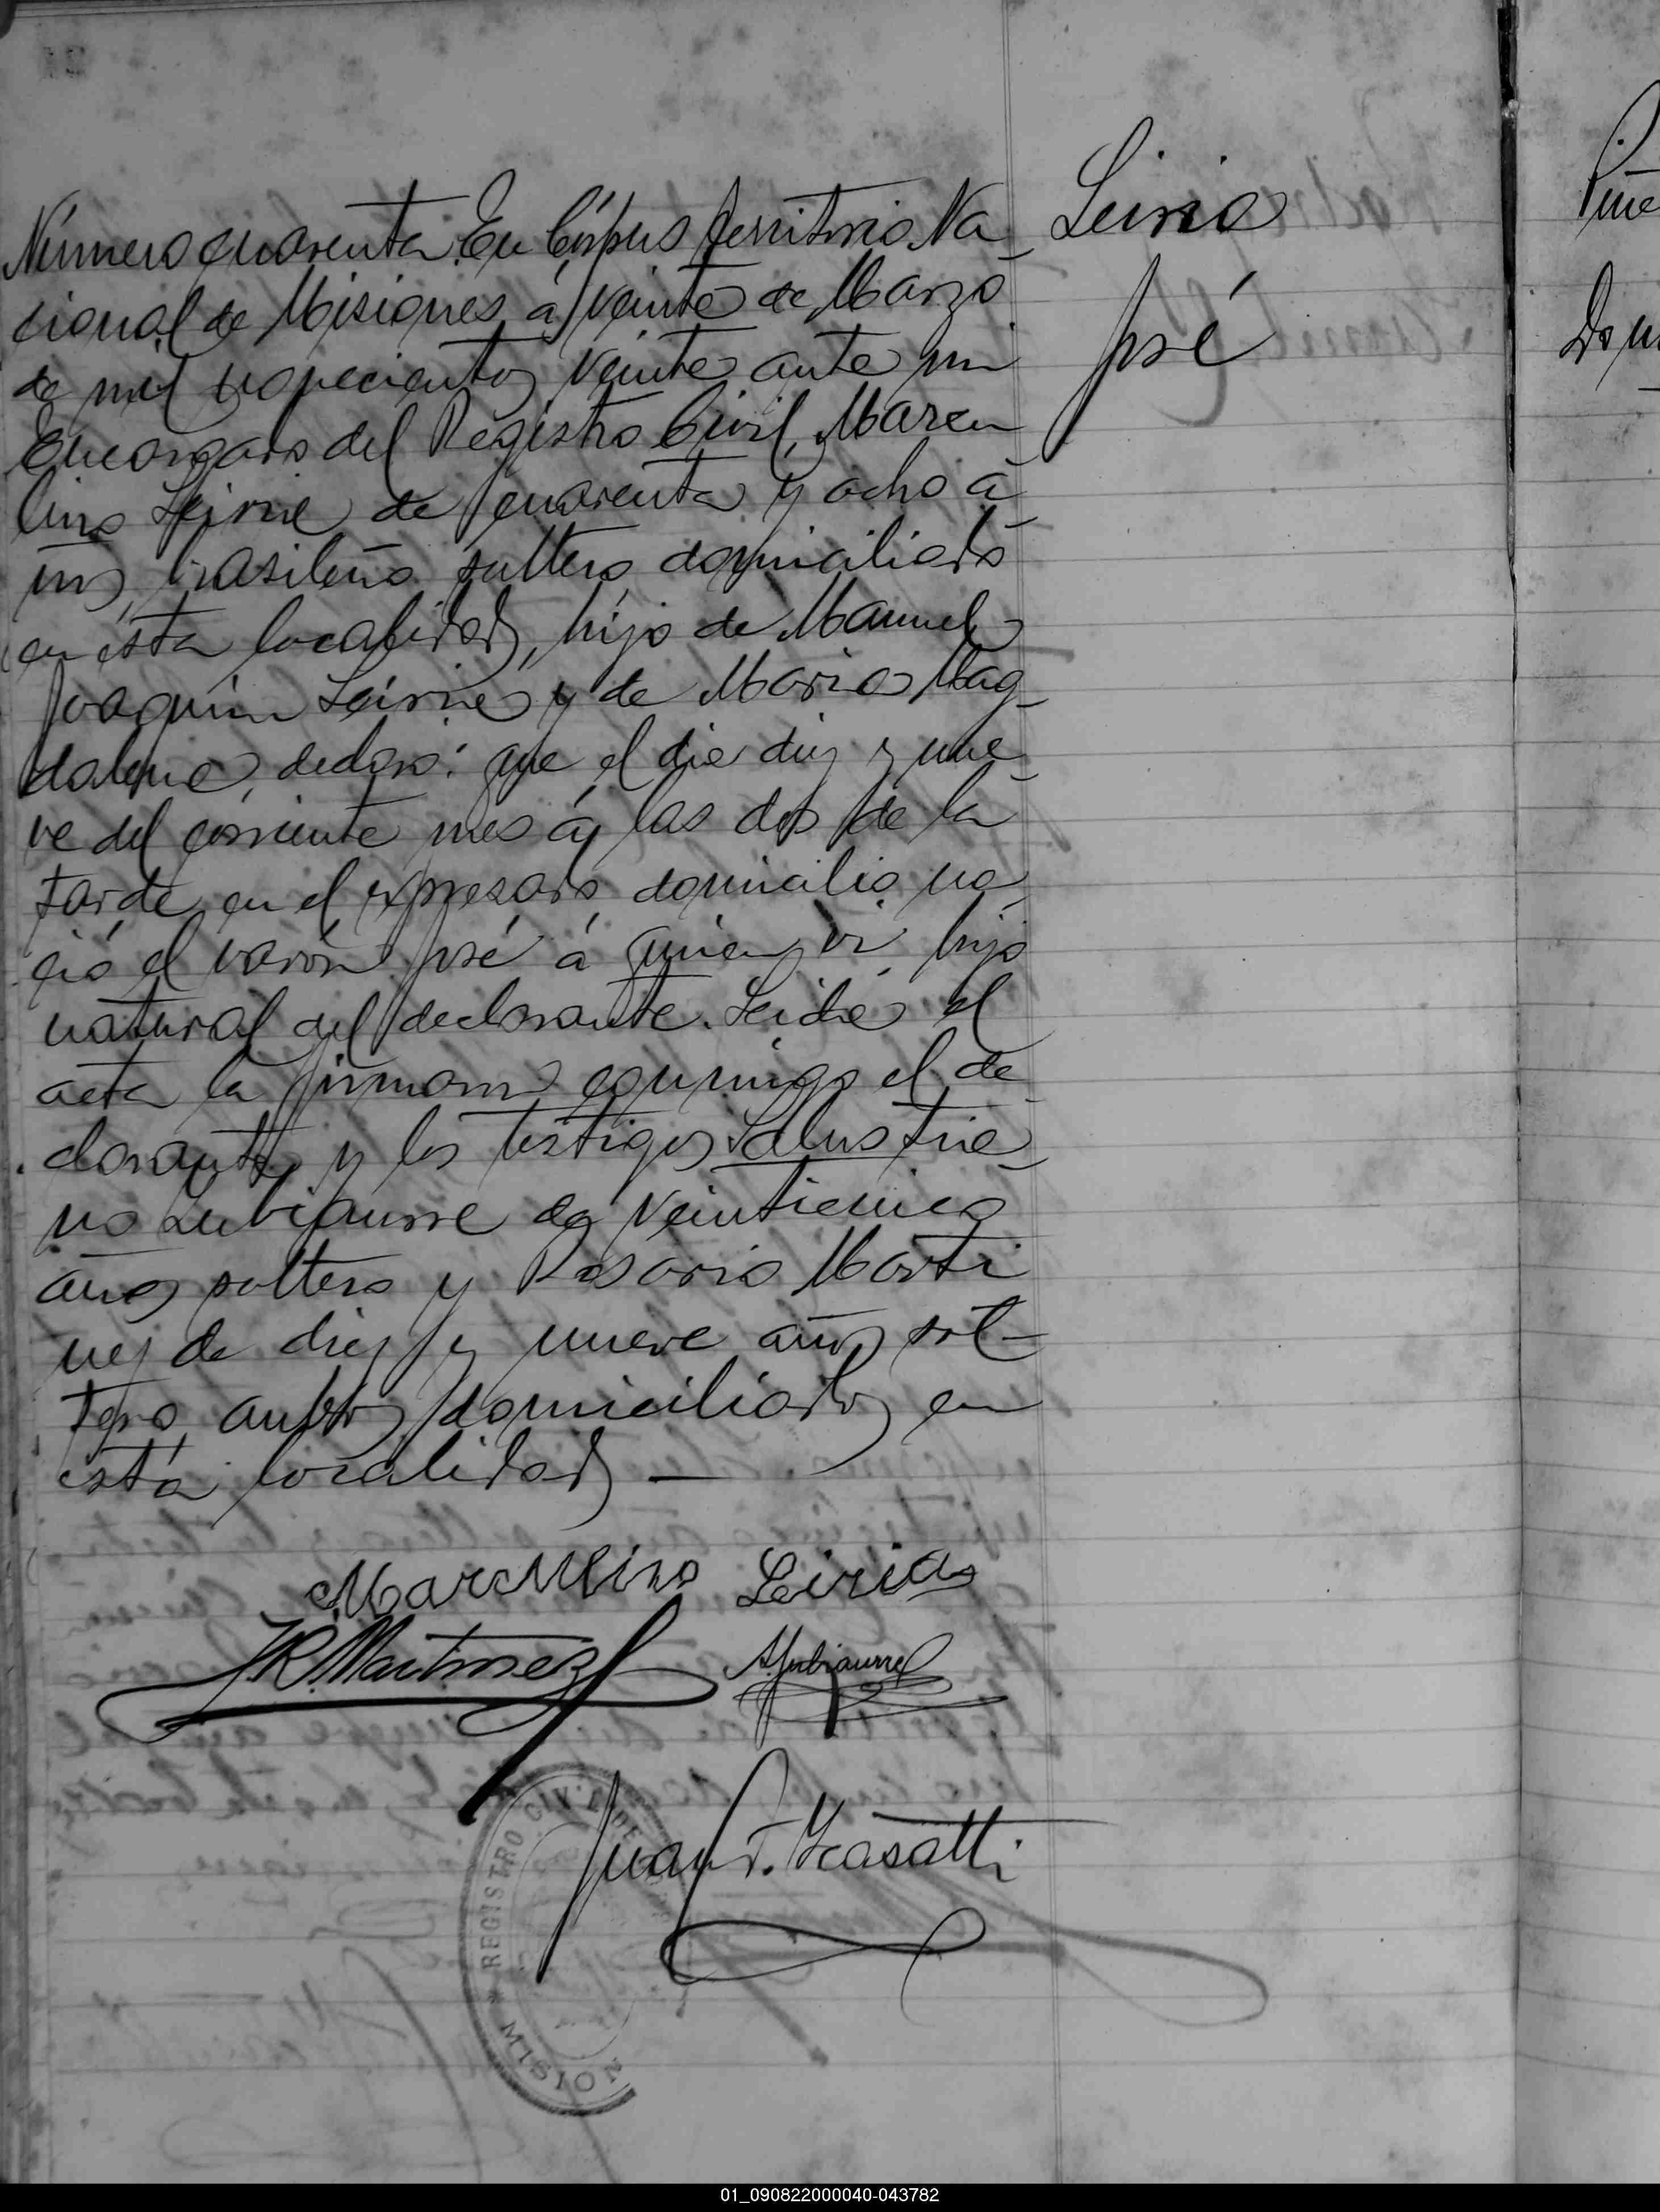 Leiria
José
Número cuarenta. En Córpus Territorio Na
cional de Misiones á veinte de Marzo
de mil novecientos veinte ante mi
Encargado del Registro Civil, Marce
lino Leiria de cuarenta y ocho a
ños, brasileño soltero, domiciliado
en ésta localidad, hijo de Manuel
Joaquim Leiria y de Maria Mag
dalena, declaró: que el dia diez y nue
ve del corriente mes á las dos de la
tarde, en el expresado domicilio na
ció el varón José á quien vi, hijo
natural del declarante. Leida el
acta la firmaron conmigo el de
clarante y los testigos Salustia
no Lubiaurre de veinticinco
años soltero y Rosario Marti
nez de diez y nueve años sol
tero, ambos domiciliados en
ésta localidad —
Marcelino Leiria
J R. Martinez
S. Lubiaurre
Juan
REGISTRO CIVIL DE
MISION
Piñe
01_090822000040-043782